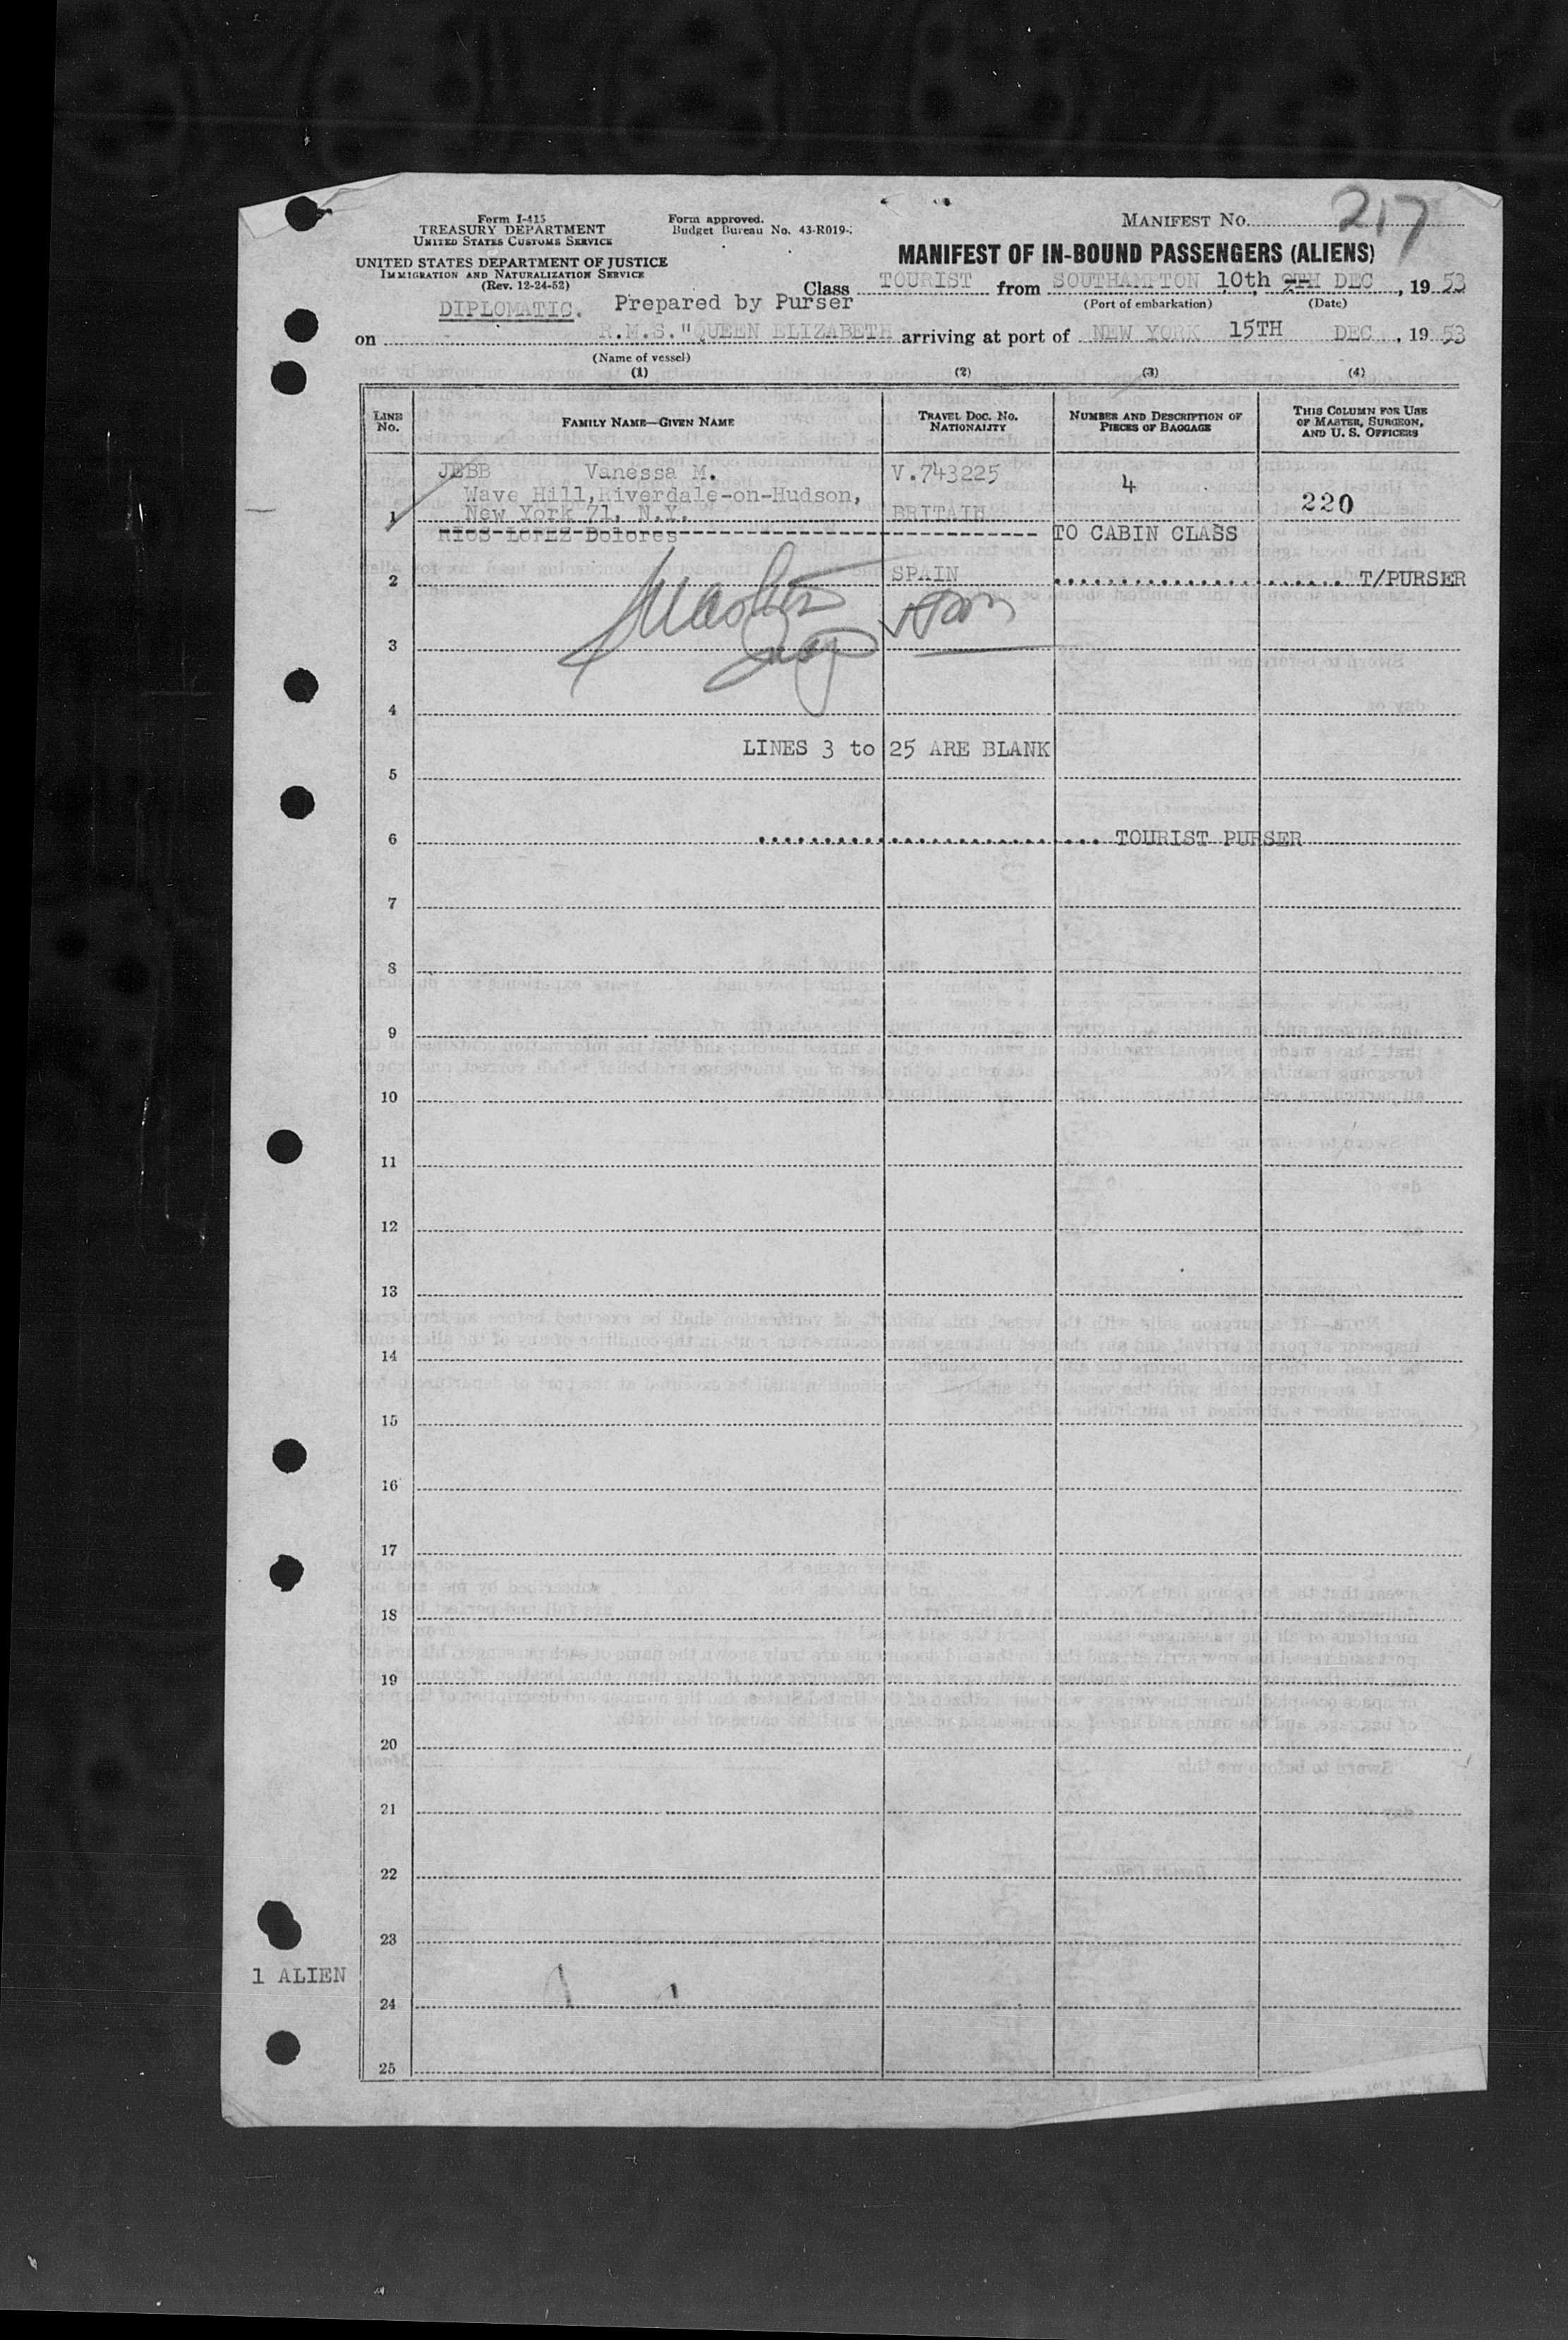 Form I-415
TREASURY DEPARTMENT
UNITED STATES CUSTOMS SERVICE
UNITED STATES DEPARTMENT OF JUSTICE
IMMIGRATION AND NATURALIZATION SERVICE
(Rev. 12-24-52)
Form approved.
Budget Bureau No. 43-R019-
MANIFEST NO. 217
MANIFEST OF IN-BOUND PASSENGERS (ALIENS)
Class TOURIST from SOUTHAMPTON 10th 9TH DEC, 19 53
(Port of embarkation) (Date)
DIPLOMATIC. Prepared by Purser
on R.M.S. "QUEEN ELIZABETH arriving at port of NEW YORK 15TH DEC, 19 53
(Name of vessel)
(1) (2) (3) (4)
LINE No. FAMILY NAME—GIVEN NAME TRAVEL DOC. NO. NATIONALITY NUMBER AND DESCRIPTION OF PIECES OF BAGGAGE THIS COLUMN FOR USE OF MASTER, SURGEON, AND U. S. OFFICERS
JEBB Vanessa M. V.743225 4 220
Wave Hill, Riverdale-on-Hudson,
1 New York 71, N.Y. BRITAIN
RIOS LOPEZ Dolores TO CABIN CLASS
2 SPAIN T/PURSER
3
4
LINES 3 to 25 ARE BLANK
5
6 TOURIST PURSER
7
8
9
10
11
12
13
14
15
16
17
18
19
20
21
22
23
1 ALIEN
24
25